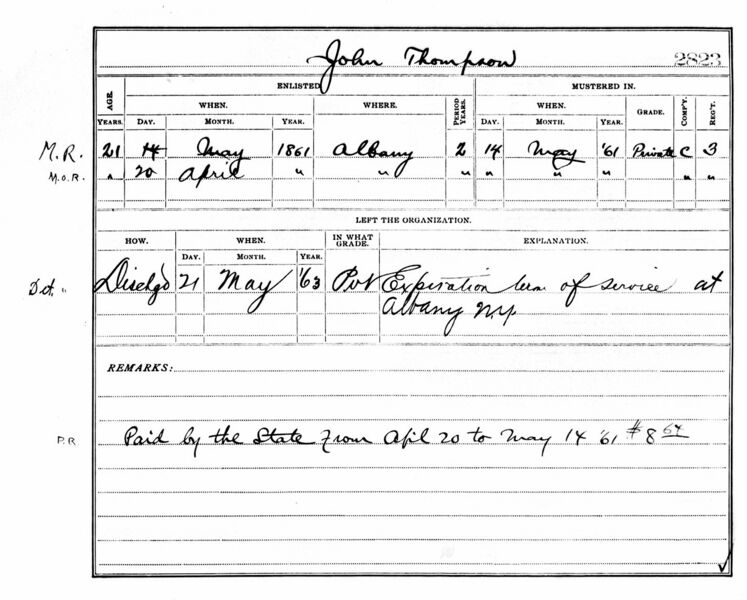 John Thompson 2823
AGE. ENLISTED MUSTERED IN.
WHEN. WHERE. PERIOD YEARS. WHEN. GRADE. COMP'Y. REG'T.
YEARS. DAY. MONTH. YEAR. DAY. MONTH. YEAR.
M.R. 21 14 May 1861 Albany 2 14 May '61 Private C 3
M.O.R. " 20 April " " " " " " " "
LEFT THE ORGANIZATION.
HOW. WHEN. IN WHAT GRADE. EXPLANATION.
DAY. MONTH. YEAR.
Dischg'd 21 May '63 Pvt Expiration term of service at
Albany N.Y.
REMARKS:
P.R. Paid by the State from Apil 20 to May 14 '61 $8 64